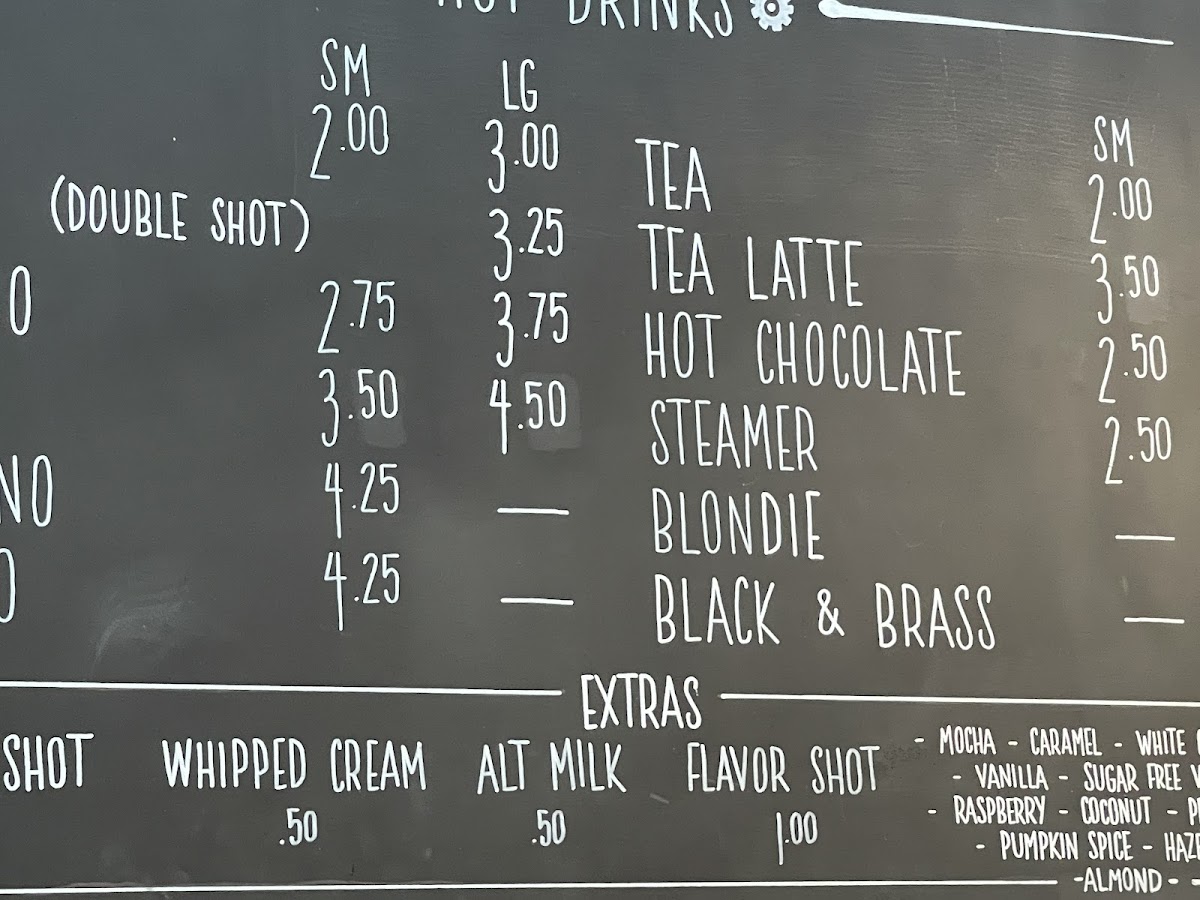 HOT DRINKS
SM LG
2.00 3.00
(DOUBLE SHOT) 3.25
O 2.75 3.75
3.50 4.50
NO 4.25 —
O 4.25 —
SM
TEA 2.00
TEA LATTE 3.50
HOT CHOCOLATE 2.50
STEAMER 2.50
BLONDIE —
BLACK & BRASS —
EXTRAS
SHOT WHIPPED CREAM ALT MILK FLAVOR SHOT
.50 .50 1.00
- MOCHA - CARAMEL - WHITE
- VANILLA - SUGAR FREE V
- RASPBERRY - COCONUT - P
PUMPKIN SPICE - HAZE
-ALMOND- -